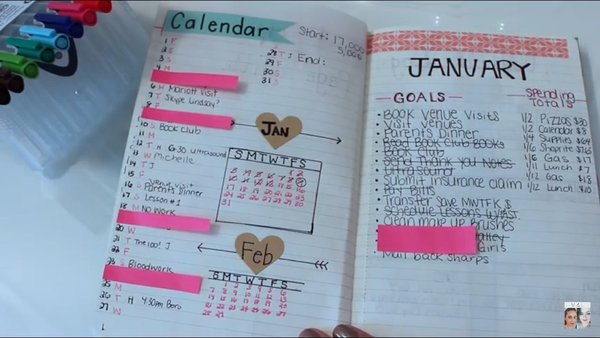 Calendar
Start: 17,000
5,000
End:
1 F
2 S
3 S
4 M
6 H Mariott Visit
7 T Skype Lindsay?
8 F
10 S Book Club
11 M
12 T H 6:30 ultrasound
13 W Michelle
14 T J
15 F
16 S Parents Dinner
17 S Lesson #1
18 M NO WORK
20 W
21 T The 100! J
22 F
23 S Bloodwork
25 M
26 T H 4:30pm Boro
27 W
28 T J
29 F
30 S
31 S
JAN
S M T W T F S
31
Feb
S M T W T F S
1 2 3 4 5 6
7 8 9 10 11 12 13
14 15 16 17 18 19 20
21 22 23 24 25 26 27
28 29
JANUARY
GOALS
Book Venue Visits
Visit Venues
Parents Dinner
Read Book Club Books
Send Thank You Notes
Ultrasound
Submit Insurance claim
Transfer Save MWTFK $
Schedule Lessons
Clean make up Brushes
Girls
Mail back Sharps
Spending
Totals
1/2 Pizzas $30
1/2 Calendar $8
1/4 Supplies $64
1/6 Shoprite $76
1/6 Gas $17
1/11 Lunch $7
1/12 Gas $18
1/12 Lunch $10